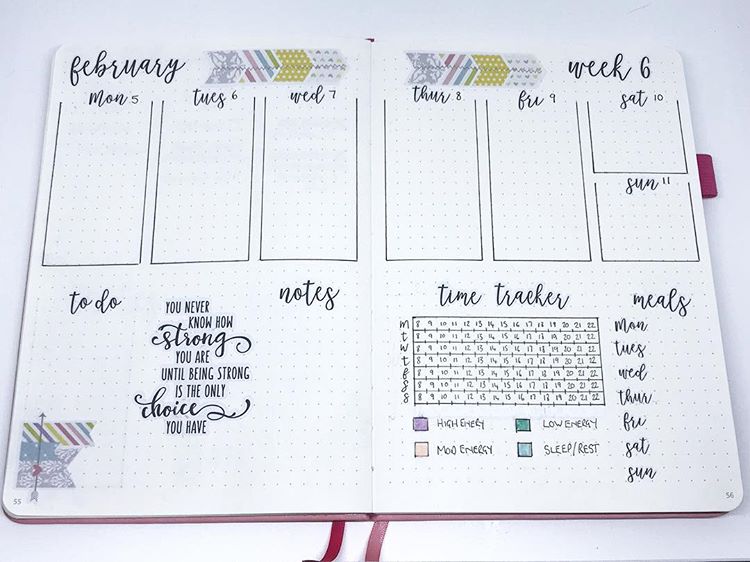 february
week 6
mon 5
tues 6
wed 7
thur 8
fri 9
sat 10
sun 11
to do
YOU NEVER
KNOW HOW
strong
YOU ARE
UNTIL BEING STRONG
IS THE ONLY
choice
YOU HAVE
notes
time tracker
M 8 9 10 11 12 13 14 15 16 17 18 19 20 21 22
T 8 9 10 11 12 13 14 15 16 17 18 19 20 21 22
W 8 9 10 11 12 13 14 15 16 17 18 19 20 21 22
T 8 9 10 11 12 13 14 15 16 17 18 19 20 21 22
F 8 9 10 11 12 13 14 15 16 17 18 19 20 21 22
S 8 9 10 11 12 13 14 15 16 17 18 19 20 21 22
S 8 9 10 11 12 13 14 15 16 17 18 19 20 21 22
HIGH ENERY
LOW ENERGY
MOD ENERGY
SLEEP/REST
meals
mon
tues
wed
thur
fri
sat
sun
55
56